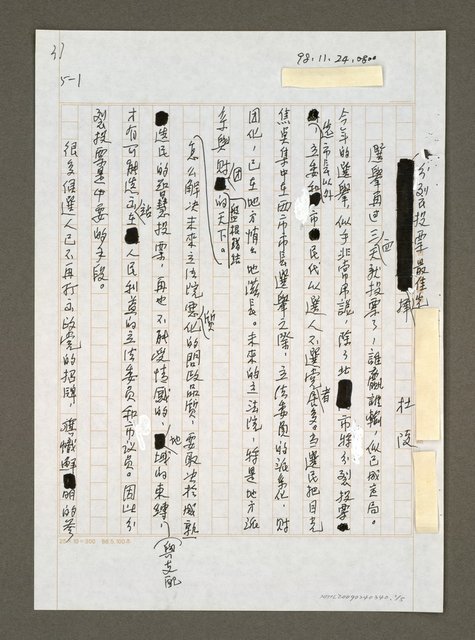 31
5-1
98.11.24.0800
分裂投票最佳策
杜陵
選舉再過三四天就投票了，誰贏誰輸似已成定局。
今年的選舉，似乎非常吊詭，除了北市特分裂投票
選市長以外，立委和市民代以選人不選黨居多。當選民把目光
焦點集中在兩市市長選舉之際，立法委員的派系化，財
團化，已在地方悄悄地滋長。未來的立法院，特是地方派
系與財團的天下。
怎麼解決未來立法院惡化的問政品質，要取決於成熟
選民的智慧投票，再也不能受情感的，地域的束縛，與支配
才有可能選出站在人民利益的立法委員和市議員。因此分
裂投票是必要的手段。
很多候選人已不再打出政黨的招牌，旗幟鮮明的